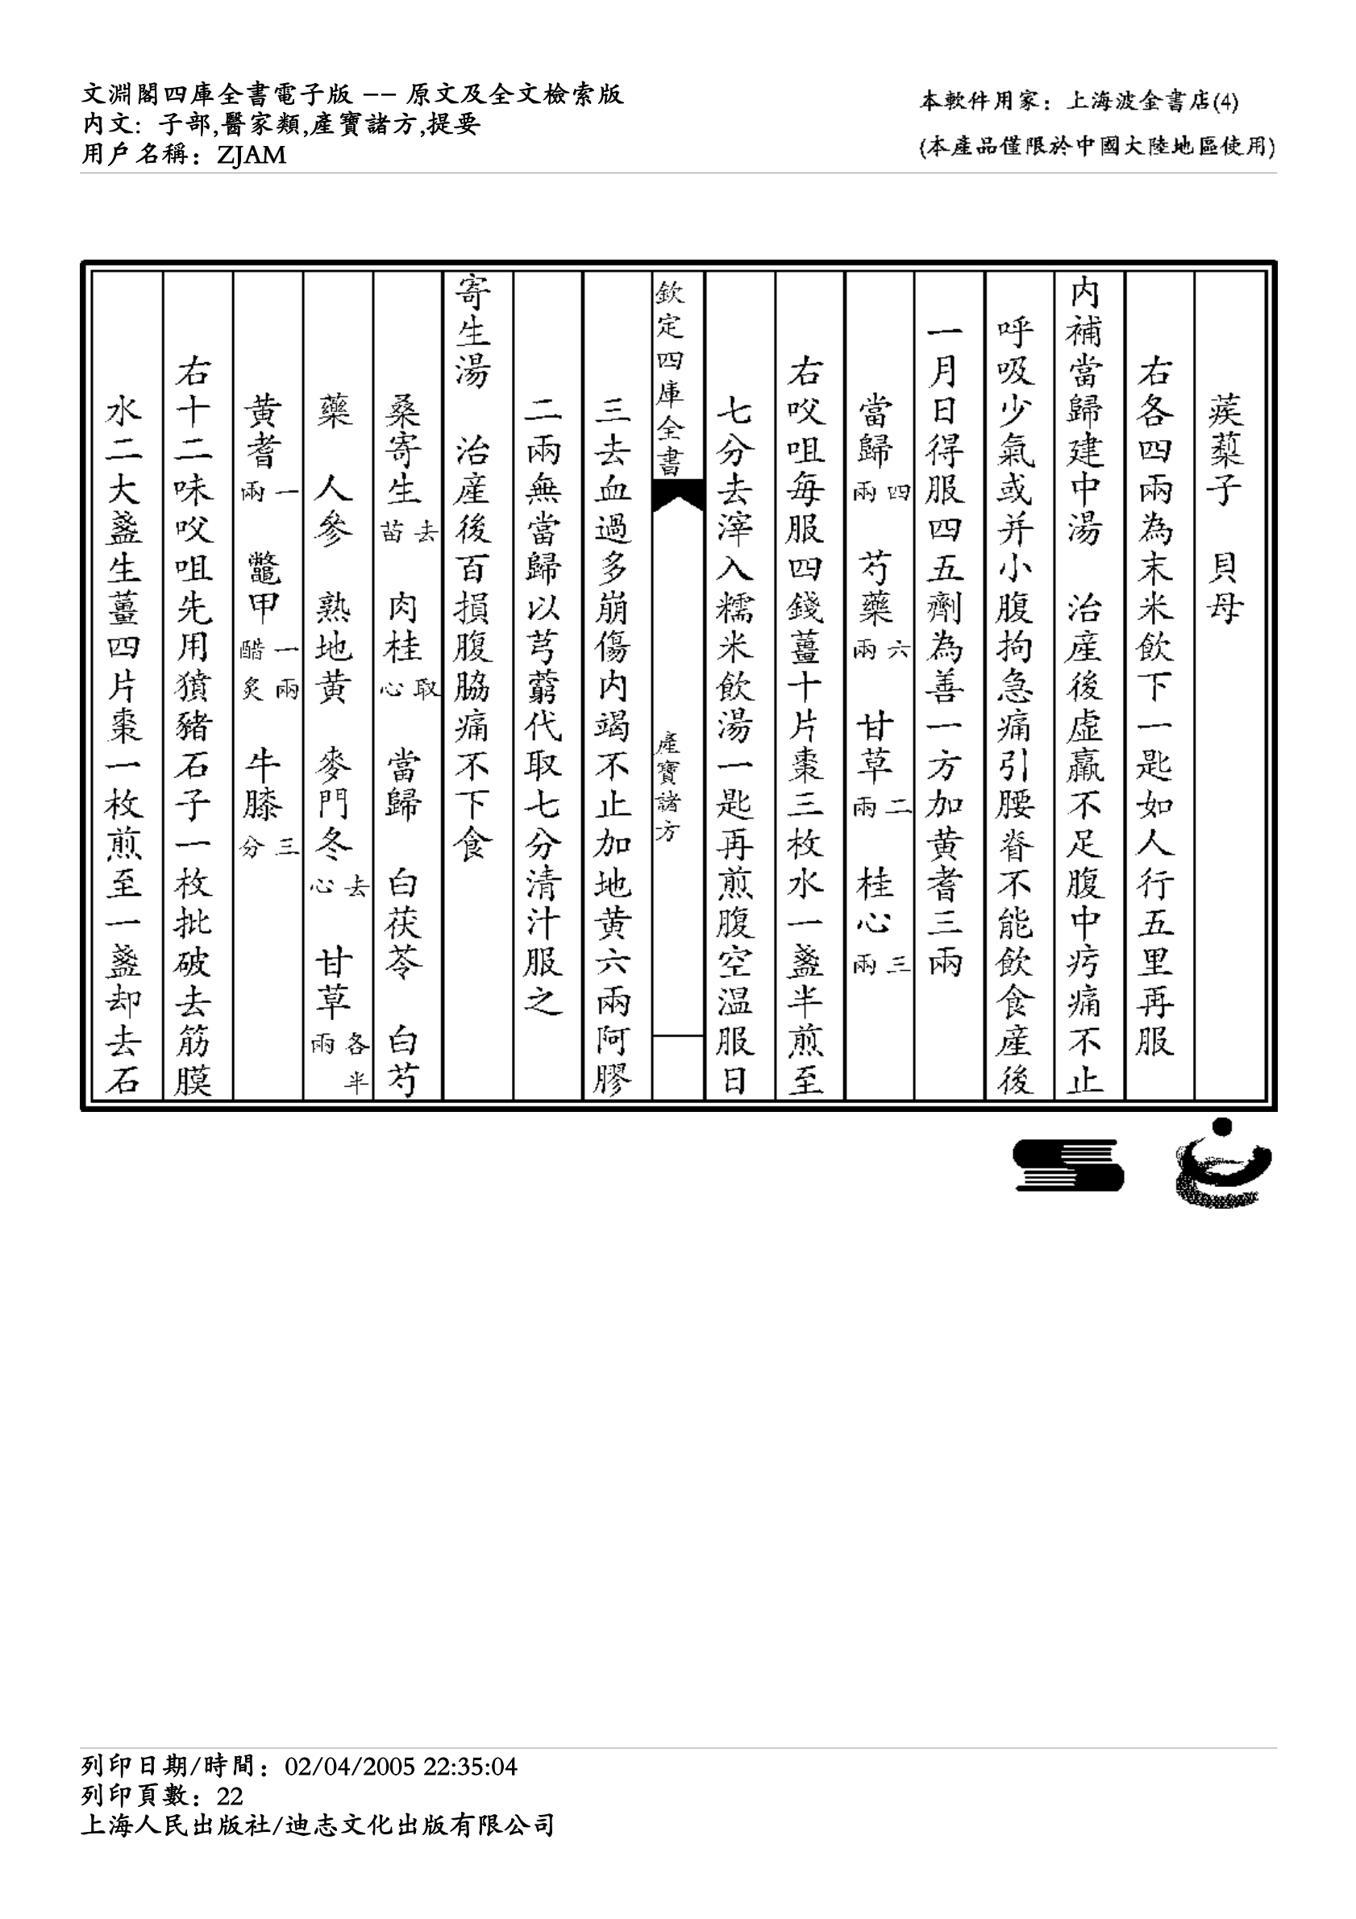 文淵閣四庫全書電子版 -- 原文及全文檢索版
内文: 子部,醫家類,產寶諸方,提要
用戶名稱: ZJAM
本軟件用家: 上海波金書店(4)
(本產品僅限於中國大陸地區使用)
蒺蔾子 貝母
右各四兩為末米飲下一匙如人行五里再服
内補當歸建中湯 治産後虛羸不足腹中疞痛不止
呼吸少氣或并小腹拘急痛引腰脊不能飲食産後
一月日得服四五劑為善一方加黄耆三兩
當歸四兩 芍藥六兩 甘草二兩 桂心三兩
右㕮咀每服四錢薑十片棗三枚水一盞半煎至
七分去滓入糯米飲湯一匙再煎腹空温服日
欽定四庫全書 産寶諸方
三去血過多崩傷内竭不止加地黄六兩阿膠
二兩無當歸以芎藭代取七分清汁服之
寄生湯 治産後百損腹脇痛不下食
桑寄生去苗 肉桂取心 當歸 白茯苓 白芍
藥 人參 熟地黄 麥門冬去心 甘草各半兩
黄耆一兩 鼈甲一兩醋炙 牛膝三分
右十二味㕮咀先用獖豬石子一枚批破去筋膜
水二大盞生薑四片棗一枚煎至一盞却去石
列印日期/時間: 02/04/2005 22:35:04
列印頁數: 22
上海人民出版社/迪志文化出版有限公司